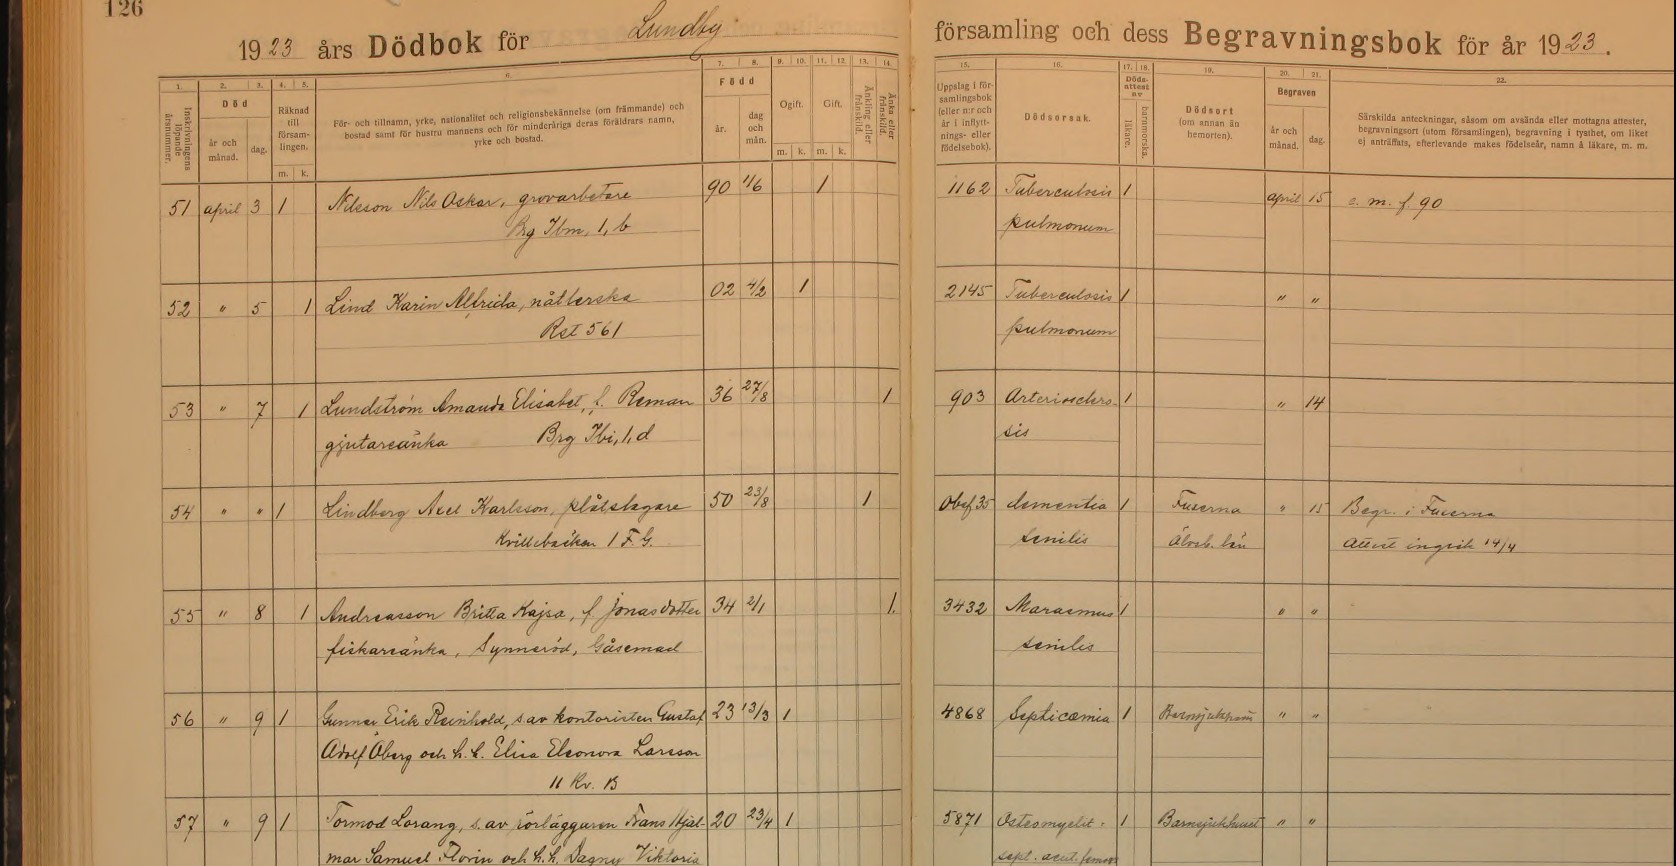 126
1923 års Dödbok för Lundby
församling och dess Begravningsbok för år 1923.
1. 2. 3. 4. 5. 6. 7. 8. 9. 10. 11. 12. 13. 14.
15. 16. 17. 18. 19. 20. 21. 22.
Inskrivningens löpande årsnummer.
Död
år och månad.
dag.
Räknad till församlingen.
m. k.
För- och tillnamn, yrke, nationalitet och religionsbekännelse (om främmande) och
bostad samt för hustru mannens och för minderåriga deras föräldrars namn,
yrke och bostad.
Född
år.
dag och mån.
Ogift.
m. k.
Gift.
m. k.
Änkling eller frånskild.
Änka eller frånskild.
Uppslag i församlingsbok
(eller n:r och
år i inflyttnings- eller
födelsebok).
Dödsorsak.
Dödsattest av
läkare.
barnmorska.
Dödsort
(om annan än
hemorten).
Begraven
år och månad.
dag.
Särskilda anteckningar, såsom om avsända eller mottagna attester,
begravningsort (utom församlingen), begravning i tysthet, om liket
ej anträffats, efterlevande makes födelseår, namn å läkare, m. m.
51 april 3 1 Nilsson Nils Oskar, grovarbetare 90 1/6 1 1162 Tuberculosis 1 april 15 e. m. f. 90
Brg Ibm, 1, b pulmonum
52 " 5 1 Lind Karin Alfrida, nåtlerska 02 4/2 1 2145 Tuberculosis 1 " "
Rst 561 pulmonum
53 " 7 1 Lundström Amanda Elisabet, f. Reman 36 27/8 1 903 Arterioscлero- 1 " 14
gjutareänka Brg Ibi, 1, d sis
54 " " 1 Lindberg Axel Karlsson, plåtslagare 50 23/8 1 Obef 35 dementia 1 Fuxerna " 15 Begr. i Fuxerna
Kvillebäcken 1 F. G. senilis Älvsb. län Attest ingick 14/4
55 " 8 1 Andreasson Britta Kajsa, f Jonasdotter 34 2/1 1. 3432 Marasmus 1 " "
fiskareänka, Synneröd, Gåsemad senilis
56 " 9 1 Gunnar Erik Reinhold, s. av kontoristen Gustaf 23 13/3 1 4868 Septicæmia 1 " "
Adolf Öberg och h. h. Elisa Eleonora Larsson
11 Kv. B
57 " 9 1 Tormod Lorang, s. av rörläggaren Frans Hjal- 20 23/4 1 5871 Osteomyelit. 1 Barnsjukhuset " "
mar Samuel Florin och h. h. Dagny Viktoria sept. acut. femor